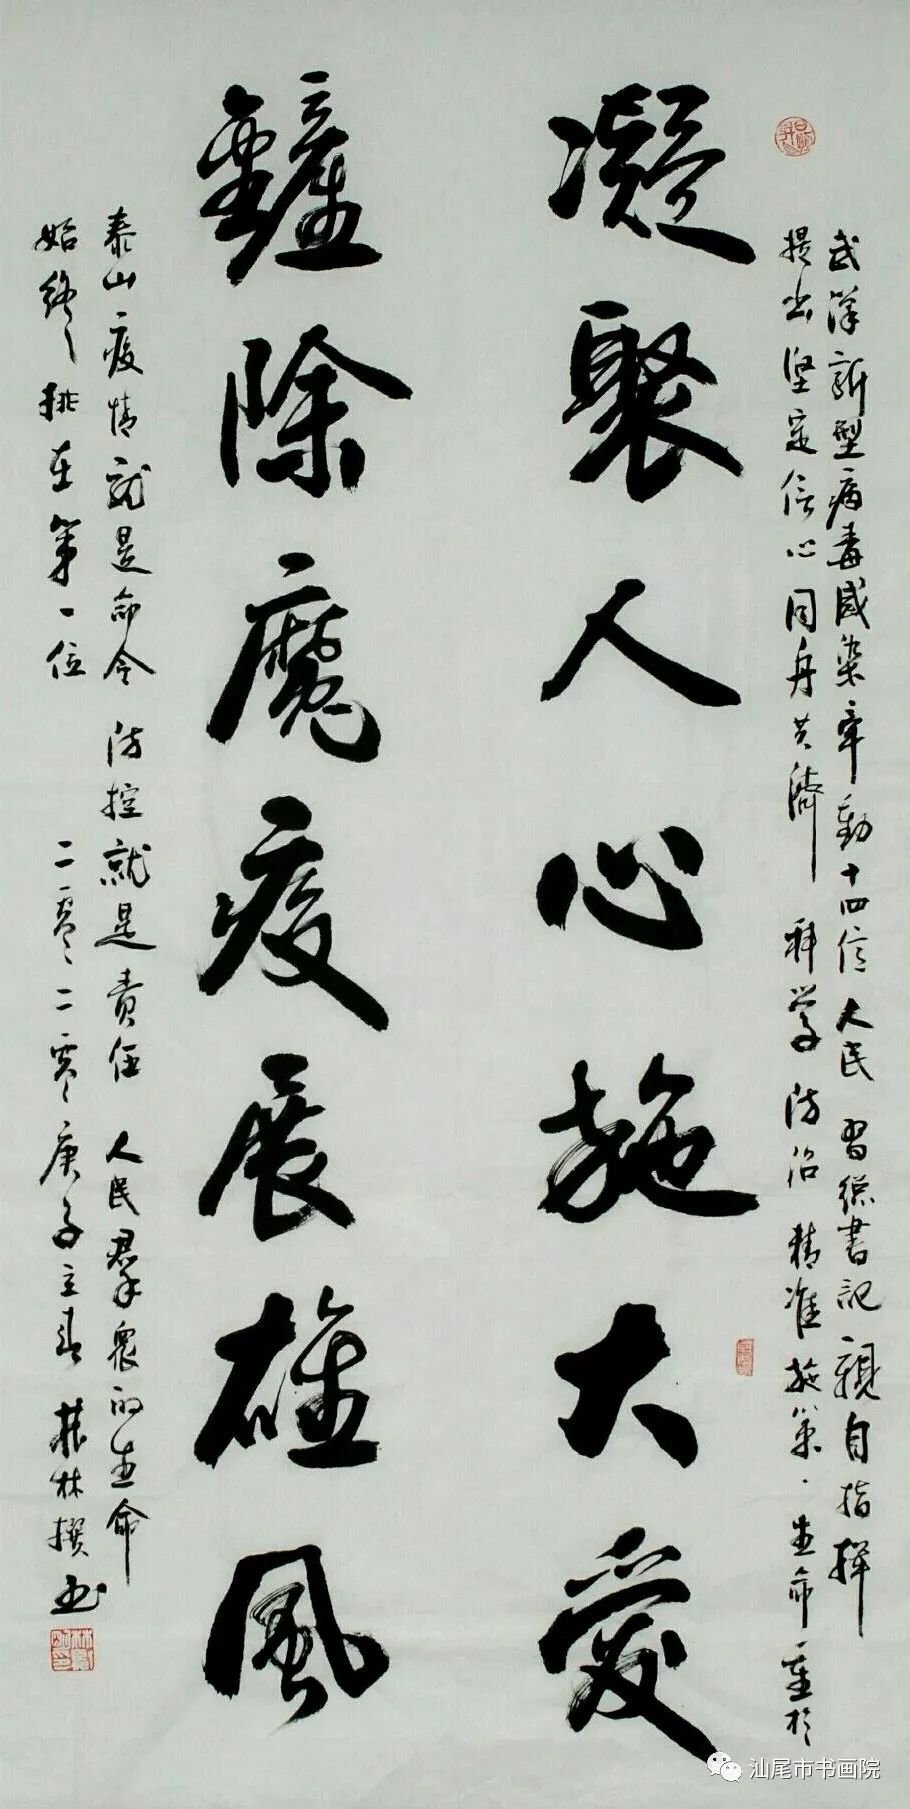 武漢新型病毒感染牵動十四億人民 習總書記親自指揮
提出坚定信心同舟共濟 科学防治 精准施策 生命重於
凝聚人心施大愛
鏟除魔疫展雄風
泰山疫情就是命令 防控就是責任 人民羣衆的生命
始终排在第一位 二零二零庚子立春 林撰书
汕尾市书画院